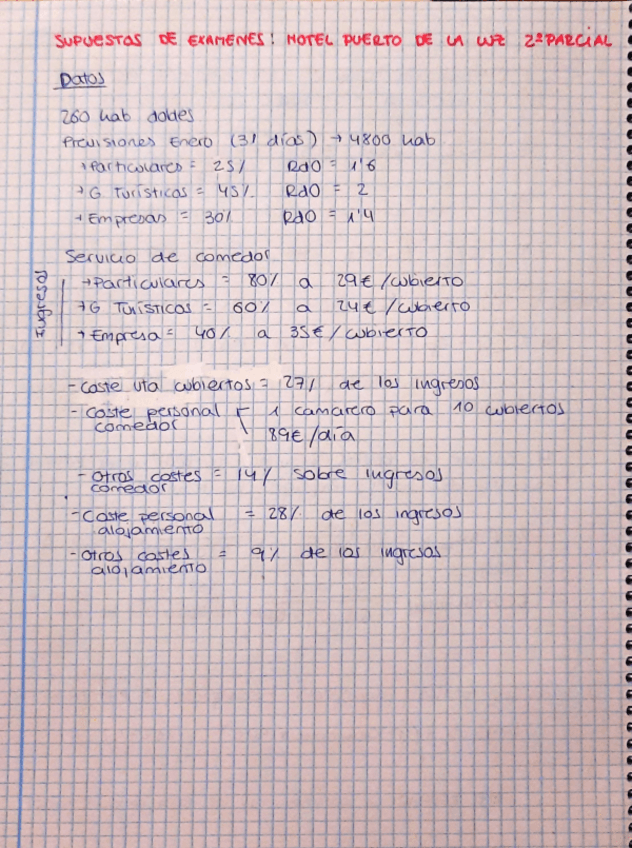 SUPUESTOS DE EXAMENES: HOTEL PUERTO DE LA LUZ 2º PARCIAL
Datos
260 hab dobles
Previsiones Enero (31 días) → 4800 hab
→ Particulares = 25% RdO = 1'6
→ G Turísticas = 45% RdO = 2
→ Empresas = 30% RdO = 1'4
Servicio de comedor
Ingresos
→ Particulares = 80% a 29€/cubierto
→ G Turísticas = 60% a 24€/cubierto
→ Empresa = 40% a 35€/cubierto
- Coste vta cubiertos = 27% de los ingresos
- Coste personal 1 camarero para 10 cubiertos
comedor 89€/día
- Otros costes = 14% sobre ingresos
comedor
- Coste personal = 28% de los ingresos
alojamiento
- Otros costes = 9% de los ingresos
alojamiento